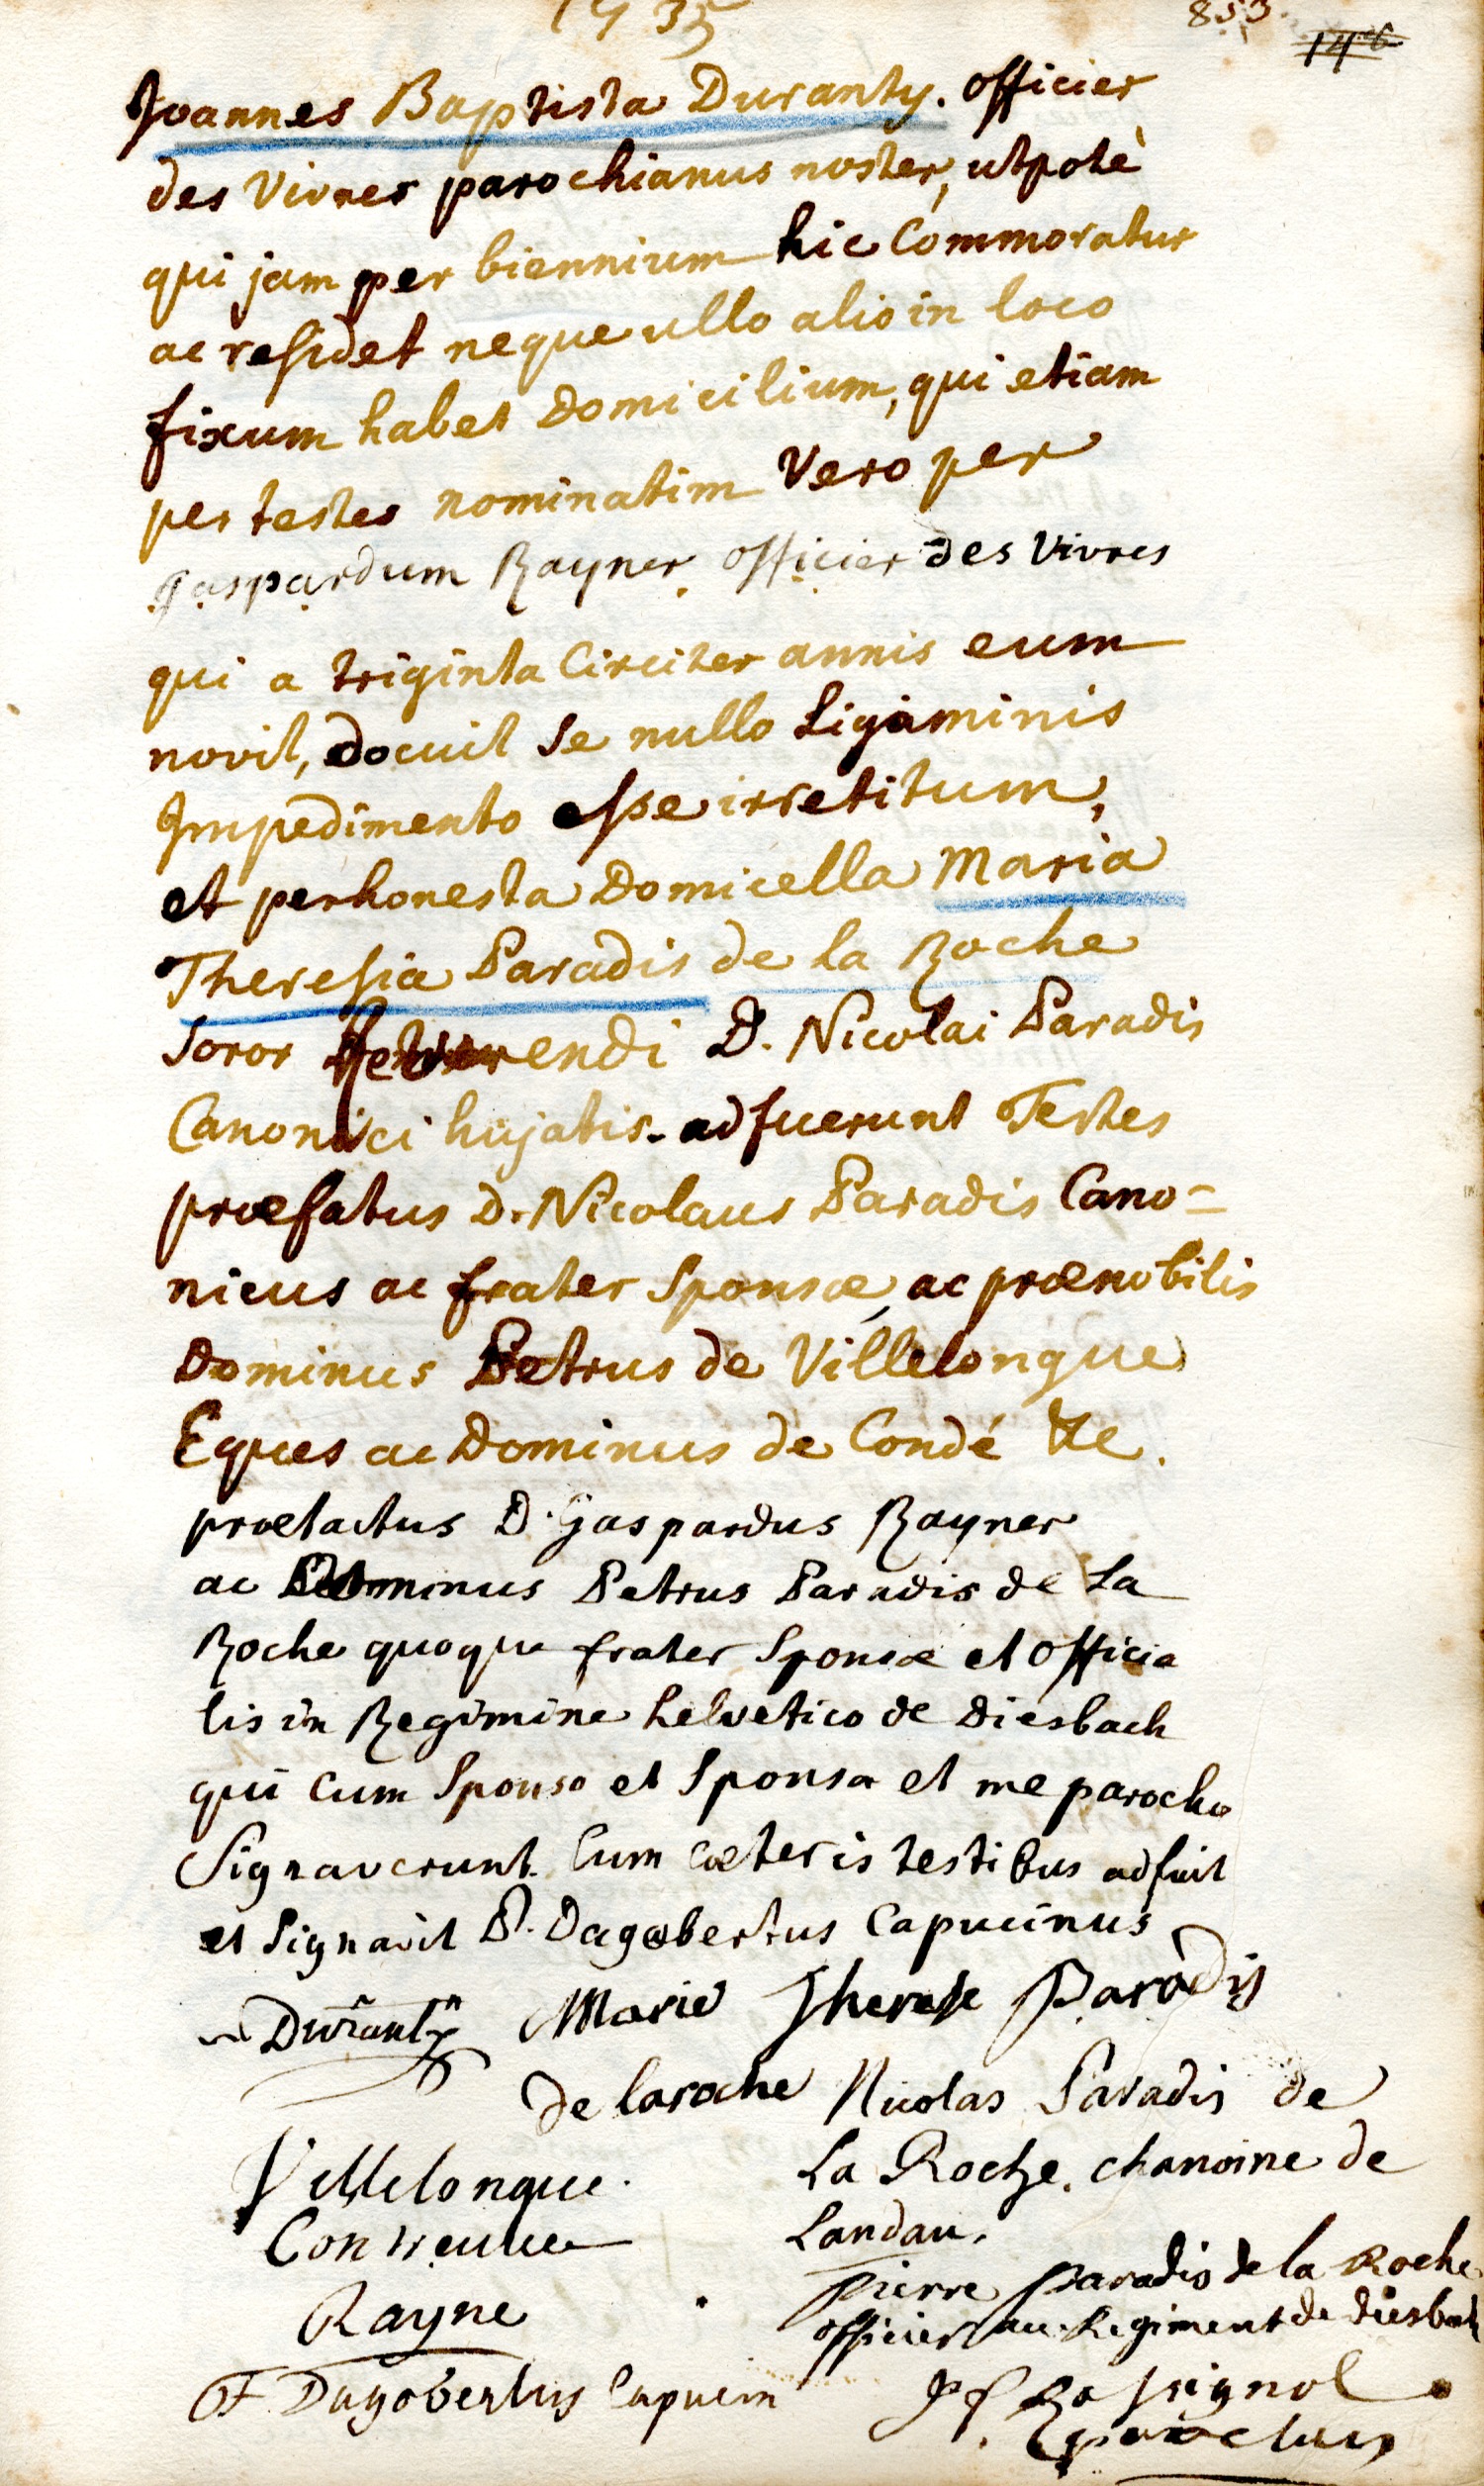 1735
853.
14
Joannes Baptista Duranty. officier
des Vivres parochianus noster, utpotè
qui jam per biennium hic Commoratur
ac residet neque ullo alio in loco
fixum habet Domicilium, qui etiam
per testes nominatim Vero per
gaspardum Rayner officier des Vivres
qui a triginta Circiter annis eum
novit, docuit se nullo Ligaminis
Impedimento esse irretitum,
et perhonesta Domicella Maria
Theresia Paradis de la Roche
soror Reverendi D. Nicolai Paradis
Canonici hujatis. adfuerunt Testes
præfatus D. Nicolaus Paradis Cano=
nicus ac frater Sponsæ, ac prænobilis
Dominus Petrus de Villelongue
Eques ac Dominus de Condé &c.
prætactus D. Gaspardus Rayner
ac Dominus Petrus Paradis de La
Roche quoque frater Sponsæ et officia
lis in Regimine helvetico de Diesbach
qui cum Sponso et Sponsa et me parocho
Signaverunt. Cum cæteris testibus adfuit
et Signavit P. Dagobertus Capucinus
Duranty Marie Therese Paradis
de laroche Nicolas Paradis de
La Roche. chanoine de
Villelongue.
Landau.
Pierre paradis de la Roche
Rayne
officier au Regiment de diesbach
F. Dagobertus Capucin
Rossignol
parochus